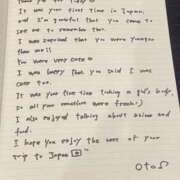 It was your first time in Japan,
and I'm grateful that you came to
see me to remember that.
I was surprised that you were younger
than me!!
You were very cute
I was happy that you said I was
cute too.
It was your first time taking a girl's body,
so all your reactions were fresh:)
I also enjoyed talking about anime and
food.
I hope you enjoy the rest of your
trip to Japan